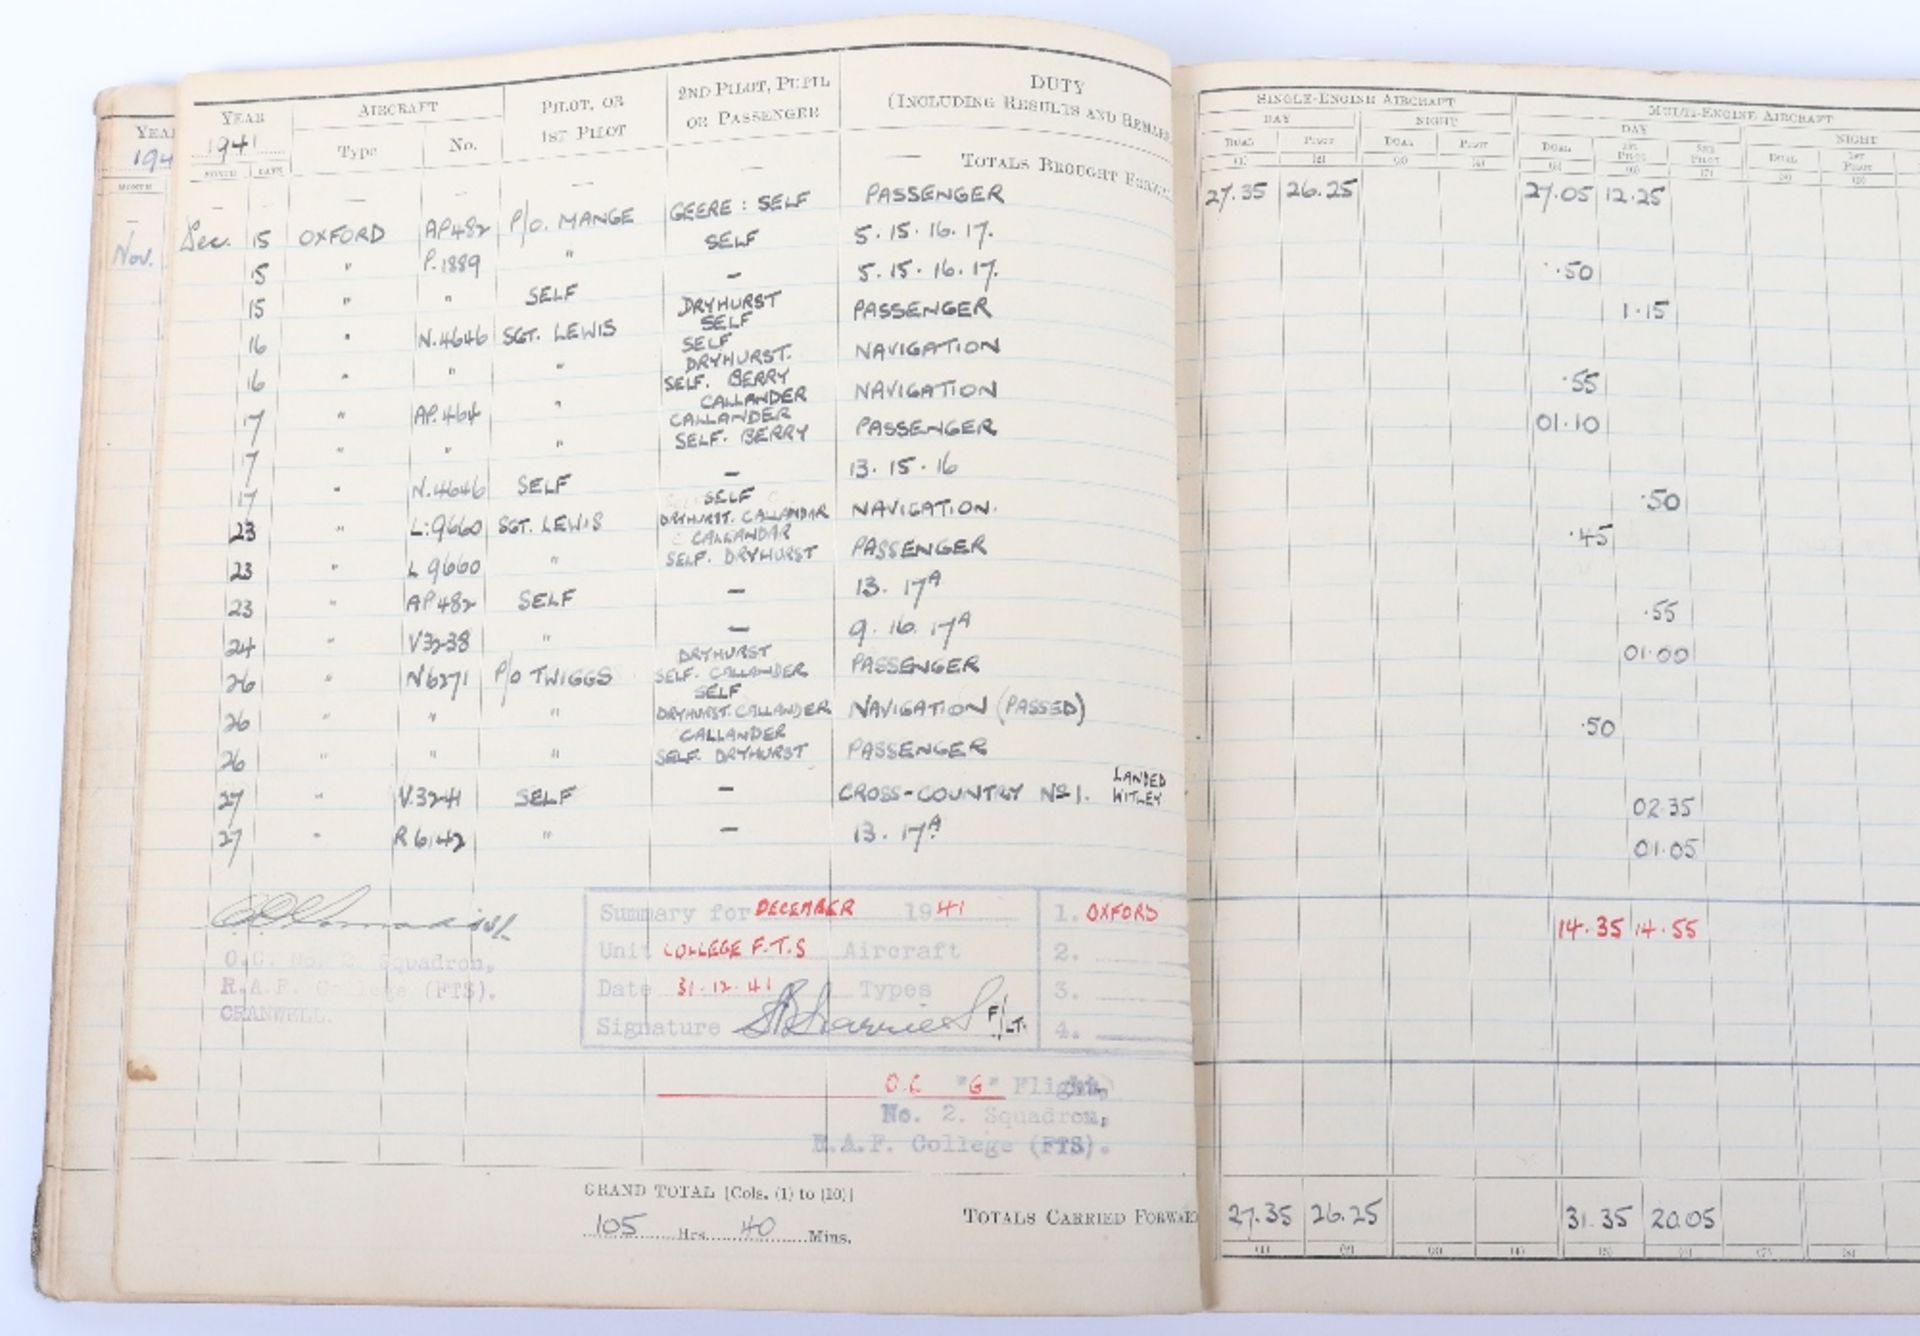 YEAR AIRCRAFT PILOT, OR 2ND PILOT, PUPIL DUTY
1941 Type No. 1ST PILOT OR PASSENGER (INCLUDING RESULTS AND REMARKS
MONTH DATE
— — — — — — — TOTALS BROUGHT FORWA
Dec. 15 OXFORD AP482 P/O. MANGE GEERE : SELF PASSENGER
15 " P.1889 " SELF 5. 15. 16. 17.
15 " " SELF — 5. 15. 16. 17.
16 " N.4646 SGT. LEWIS DRYHURST SELF PASSENGER
16 " " " SELF DRYHURST. NAVIGATION
17 " AP.464 " SELF. BERRY CALLANDER NAVIGATION
17 " " " CALLANDER SELF. BERRY PASSENGER
17 " N.4646 SELF — 13. 15. 16
23 " L:9660 SGT. LEWIS SELF DRYHURST. CALLANDAR NAVIGATION.
23 " L 9660 " CALLANDAR SELF. DRYHURST PASSENGER
23 " AP482 SELF — 13. 17A
24 " V3238 " — 9. 16. 17A
26 " N6271 P/O TWIGGS DRYHURST SELF. CALLANDER PASSENGER
26 " " " SELF DRYHURST. CALLANDER NAVIGATION (PASSED)
26 " " " CALLANDER SELF. DRYHURST PASSENGER
27 " V.3241 SELF — CROSS-COUNTRY No 1. LANDED WITLEY
27 " R6142 " — 13. 17A
O.C. No. 2 Squadron,
R.A.F. College (FTS).
CRANWELL.
Summary for DECEMBER 1941 1. OXFORD
Unit COLLEGE F.T.S Aircraft 2.
Date 31.12.41 Types 3.
Signature F/LT. 4.
O.C "G" Flight,
No. 2. Squadron,
R.A.F. College (FTS).
GRAND TOTAL [Cols. (1) to (10)]
105 Hrs. 40 Mins.
TOTALS CARRIED FORWA
YEA
194
MONTH
—
Nov.
SINGLE-ENGINE AIRCRAFT MULTI-ENGINE AIRCRAFT
DAY NIGHT DAY NIGHT
DUAL PILOT DUAL PILOT DUAL 1ST PILOT 2ND PILOT DUAL 1ST PILOT
(1) (2) (3) (4) (5) (6) (7) (8) (9)
27.35 26.25 27.05 12.25
.50
1.15
.55
01.10
.50
.45
.55
01.00
.50
02.35
01.05
14.35 14.55
27.35 26.25 31.35 20.05
(1) (2) (3) (4) (5) (6) (7) (8)